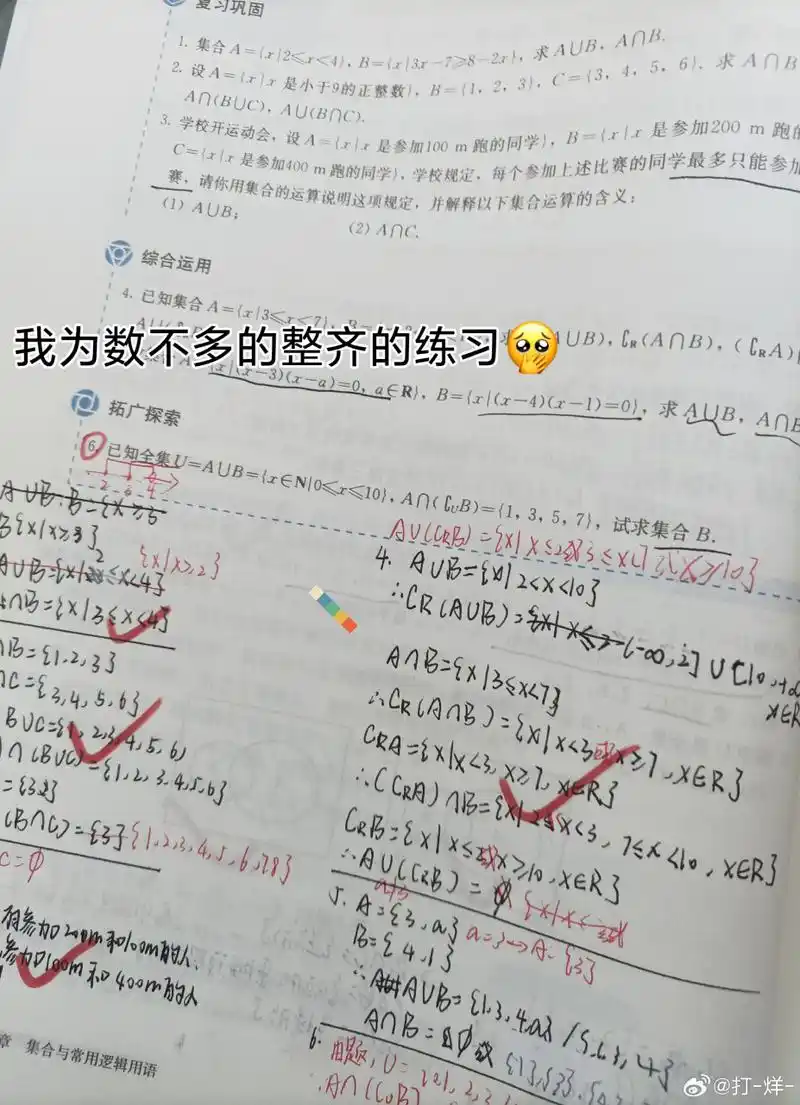 复习巩固
1. 集合A={x|2≤x<4}, B={x|3x-7≥8-2x}, 求A∪B, A∩B.
2. 设A={x|x 是小于9的正整数}, B={1, 2, 3}, C={3, 4, 5, 6}. 求A∩B
A∩(B∪C), A∪(B∩C).
3. 学校开运动会, 设A={x|x 是参加100 m 跑的同学}, B={x|x 是参加200 m 跑的
C={x|x 是参加400 m 跑的同学}, 学校规定, 每个参加上述比赛的同学最多只能参加
赛, 请你用集合的运算说明这项规定, 并解释以下集合运算的含义:
(1) A∪B;
(2) A∩C.
综合运用
4. 已知集合A={x|3≤x<7}, B=
A∪B), ∁R(A∩B), (∁RA)
我为数不多的整齐的练习🥹
(x-3)(x-a)=0, a∈R}, B={x|(x-4)(x-1)=0}, 求A∪B, A∩B
拓广探索
6. 已知全集U=A∪B={x∈N|0≤x≤10}, A∩(∁UB)={1, 3, 5, 7}, 试求集合B.
B{x|x≥3}
{x|x≥2}
A∩B={x|3≤x<4}
∩B={1,2,3}
∩C={3,4,5,6}
B∪C={1,2,3,4,5,6}
∩(B∪C)={1,2,3,4,5,6}
(B∩C)={3}{1,2,3,4,5,6,7,8}
C=∅
参加200m和100m的人.
参加100m和400m的人
4. A∪B={x|2<x<10}
∴CR(A∪B)=
(-∞,2]∪[10,+∞
x∈R
A∩B={x|3≤x<7}
∴CR(A∩B)={x|x<3或x≥7,x∈R}
CRA={x|x<3,x≥7,x∈R}
∴(CRA)∩B={x|2<x<3,7≤x<10,x∈R}
CRB={x|x≤2或x≥10,x∈R}
∴A∪(CRB)=
5. A={3,a} a=3→A={3}
B={4,1}
∴A∪B={1,3,4,a}/{1,3,4}
A∩B=
6.
由题, U={0,1,2,3
∴A∩(CuB)
章 集合与常用逻辑用语
@打-烊-